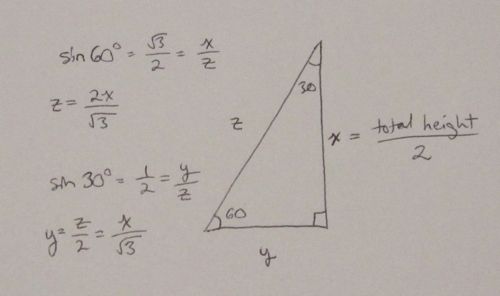 sin 60° = √3/2 = x/z
z = 2x/√3
sin 30° = 1/2 = y/z
y = z/2 = x/√3
30
z
x = total height/2
60
y